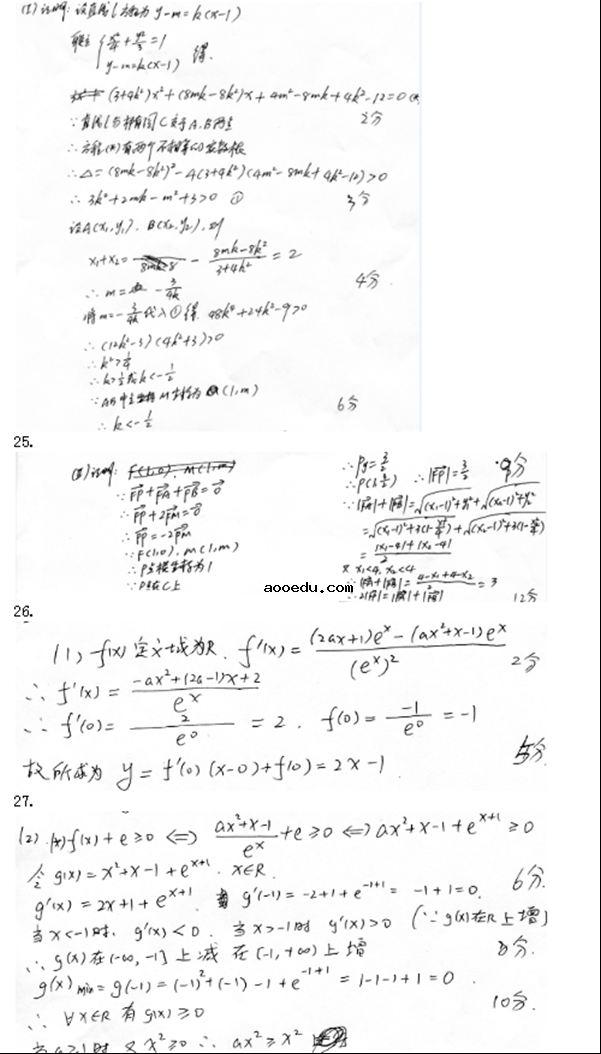 (I) 证明: 设直线l方程为 y-m=k(x-1)
联立 { x²/4+y²/3=1
y-m=k(x-1) 得.
(3+4k²)x²+(8mk-8k²)x+4m²-8mk+4k²-12=0 (*)
∵直线l与椭圆C交于A、B两点 2分
∴方程(*)有两个不相等的实数根
∴Δ=(8mk-8k²)²-4(3+4k²)(4m²-8mk+4k²-12)>0
∴3k²+2mk-m²+3>0 ① 3分
设A(x₁,y₁), B(x₂,y₂), 则
x₁+x₂= - (8mk-8k²)/(3+4k²) = 2
4分
∴m= -3/4k
将m=-3/4k代入①得 48k⁴+24k²-9>0
∴(12k²-3)(4k²+3)>0
∴k²>1/4
∴k>1/2或k<-1/2
∵AB中点坐标M坐标为(1,m) 6分
∴k<-1/2
25.
(Ⅱ)证明: F(1,0), M(1,m)
∵FP+FA+FB=0
∴FP+2FM=0
∴FP=-2FM
∵F(1,0), M(1,m)
∴P点横坐标为1
∵P点在C上
∴Py=3/2
∴P(1,3/2) ∴|FP|=3/2 9分
∵|FA|+|FB|=√((x₁-1)²+y₁²)+√((x₂-1)²+y₂²)
=√((x₁-1)²+3(1-x₁²/4))+√((x₂-1)²+3(1-x₂²/4))
=(|x₁-4|+|x₂-4|)/2
又 x₁<4, x₂<4
∴|FA|+|FB|=(4-x₁+4-x₂)/2=3
∴2|FP|=|FA|+|FB| 12分
aooedu.com
26.
(1) f(x)定义域为R. f'(x)=((2ax+1)eˣ-(ax²+x-1)eˣ)/(eˣ)² 2分
∴f'(x)=(-ax²+(2a-1)x+2)/eˣ
∴f'(0)=2/e⁰=2. f(0)=-1/e⁰=-1
5分
故所求为 y=f'(0)(x-0)+f(0)=2x-1.
27.
(2). f(x)+e≥0 ⟺ (ax²+x-1)/eˣ+e≥0 ⟺ ax²+x-1+eˣ⁺¹≥0
令g(x)=x²+x-1+eˣ⁺¹. x∈R. 6分
g'(x)=2x+1+eˣ⁺¹. g'(-1)=-2+1+e⁻¹⁺¹=-1+1=0.
当x<-1时, g'(x)<0. 当x>-1时 g'(x)>0 (∵g(x)在R上增)
∴g(x)在(-∞,-1]上减 在[-1,+∞)上增 8分
g(x)min=g(-1)=(-1)²+(-1)-1+e⁻¹⁺¹=1-1-1+1=0.
∴∀x∈R 有g(x)≥0 10分.
当a≥1时 又x²≥0 ∴ax²≥x²